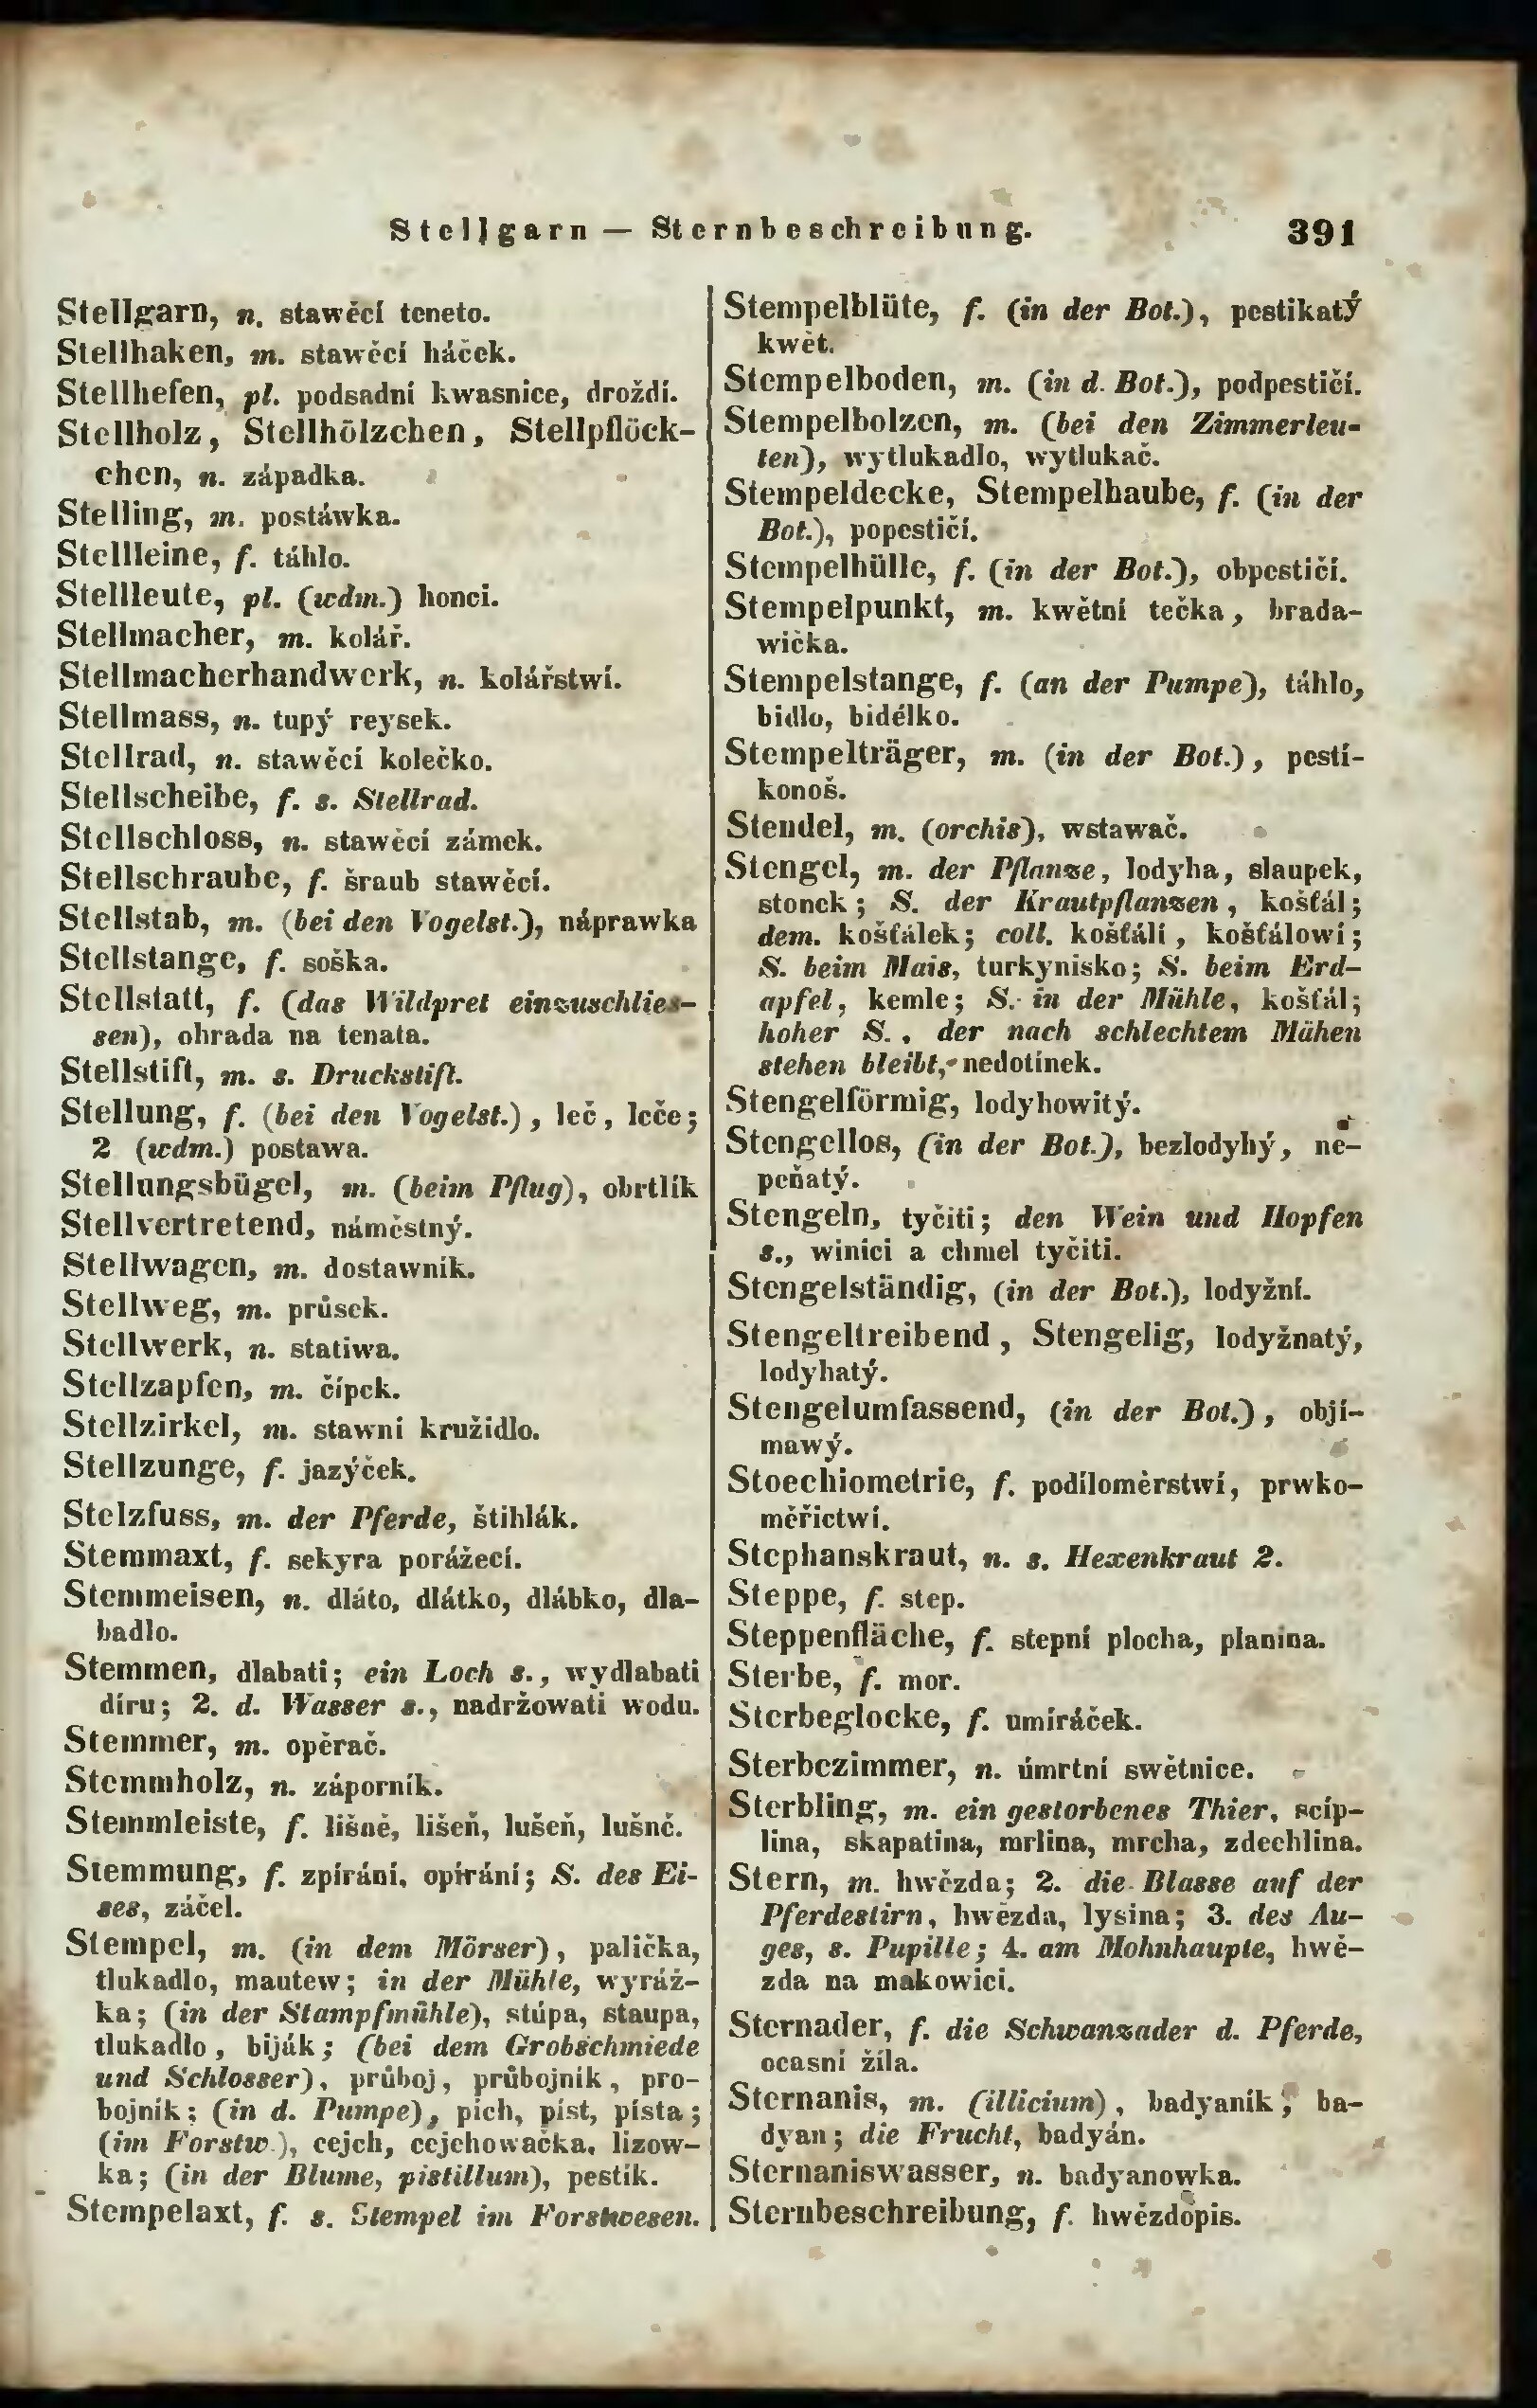 Stellgarn — Sternbeschreibung. 391
Stellgarn, n. stawěcí teneto.
Stellhaken, m. stawěcí háček.
Stellhefen, pl. podsadní kwasnice, droždí.
Stellholz, Stellhölzchen, Stellpflöck-
chen, n. západka.
Stelling, m. postáwka.
Stellleine, f. táhlo.
Stellleute, pl. (wdm.) honci.
Stellmacher, m. kolář.
Stellmacherhandwerk, n. kolářstwí.
Stellmass, n. tupý reysek.
Stellrad, n. stawěcí kolečko.
Stellscheibe, f. s. Stellrad.
Stellschloss, n. stawěcí zámek.
Stellschraube, f. šraub stawěcí.
Stellstab, m. (bei den Vogelst.), náprawka
Stellstange, f. soška.
Stellstatt, f. (das Wildpret einzuschlies-
sen), ohrada na tenata.
Stellstift, m. s. Druckstift.
Stellung, f. (bei den Vogelst.), leč, leče;
2 (wdm.) postawa.
Stellungsbügel, m. (beim Pflug), obrtlík
Stellvertretend, náměstný.
Stellwagen, m. dostawník.
Stellweg, m. průsek.
Stellwerk, n. statiwa.
Stellzapfen, m. čípek.
Stellzirkel, m. stawni kružidlo.
Stellzunge, f. jazýček.
Stelzfuss, m. der Pferde, štihlák.
Stemmaxt, f. sekyra porážecí.
Stemmeisen, n. dláto, dlátko, dlábko, dla-
badlo.
Stemmen, dlabati; ein Loch s., wydlabati
díru; 2. d. Wasser s., nadržowati wodu.
Stemmer, m. opěrač.
Stemmholz, n. záporník.
Stemmleiste, f. lišně, lišeň, lušeň, lušně.
Stemmung, f. zpírání, opírání; S. des Ei-
ses, záčel.
Stempel, m. (in dem Mörser), palička,
tlukadlo, mautew; in der Mühle, wyráž-
ka; (in der Stampfmühle), stúpa, staupa,
tlukadlo, biják; (bei dem Grobschmiede
und Schlosser), průboj, průbojník, pro-
bojník; (in d. Pumpe), pích, píst, písta;
(im Forstw.), cejch, cejchowačka, lizow-
ka; (in der Blume, pistillum), pestík.
Stempelaxt, f. s. Stempel im Forstwesen.
Stempelblüte, f. (in der Bot.), pestikatý
kwět.
Stempelboden, m. (in d. Bot.), podpestičí.
Stempelbolzen, m. (bei den Zimmerleu-
ten), wytlukadlo, wytlukač.
Stempeldecke, Stempelhaube, f. (in der
Bot.), popestičí.
Stempelhülle, f. (in der Bot.), obpestičí.
Stempelpunkt, m. kwětní tečka, brada-
wička.
Stempelstange, f. (an der Pumpe), táhlo,
bidlo, bidélko.
Stempelträger, m. (in der Bot.), pestí-
konoš.
Stendel, m. (orchis), wstawač.
Stengel, m. der Pflanze, lodyha, slaupek,
stonek; S. der Krautpflanzen, košťál;
dem. košťálek; coll. košťálí, košťálowí;
S. beim Mais, turkynisko; S. beim Erd-
apfel, kemle; S. in der Mühle, košťál;
hoher S., der nach schlechtem Mähen
stehen bleibt, nedotínek.
Stengelförmig, lodyhowitý.
Stengellos, (in der Bot.), bezlodyhý, ne-
peňatý.
Stengeln, tyčiti; den Wein und Hopfen
s., winici a chmel tyčiti.
Stengelständig, (in der Bot.), lodyžní.
Stengeltreibend, Stengelig, lodyžnatý,
lodyhatý.
Stengelumfassend, (in der Bot.), objí-
mawý.
Stoechiometrie, f. podíloměrstwí, prwko-
měřictwí.
Stephanskraut, n. s. Hexenkraut 2.
Steppe, f. step.
Steppenfläche, f. stepní plocha, planina.
Sterbe, f. mor.
Sterbeglocke, f. umíráček.
Sterbezimmer, n. úmrtní swětnice.
Sterbling, m. ein gestorbenes Thier, scíp-
lina, skapatina, mrlina, mrcha, zdechlina.
Stern, m. hwězda; 2. die Blasse auf der
Pferdestirn, hwězda, lysina; 3. des Au-
ges, s. Pupille; 4. am Mohnhaupte, hwě-
zda na makowici.
Sternader, f. die Schwanzader d. Pferde,
ocasní žíla.
Sternanis, m. (illicium), badyaník, ba-
dyan; die Frucht, badyán.
Sternaniswasser, n. badyanowka.
Sternbeschreibung, f. hwězdopis.